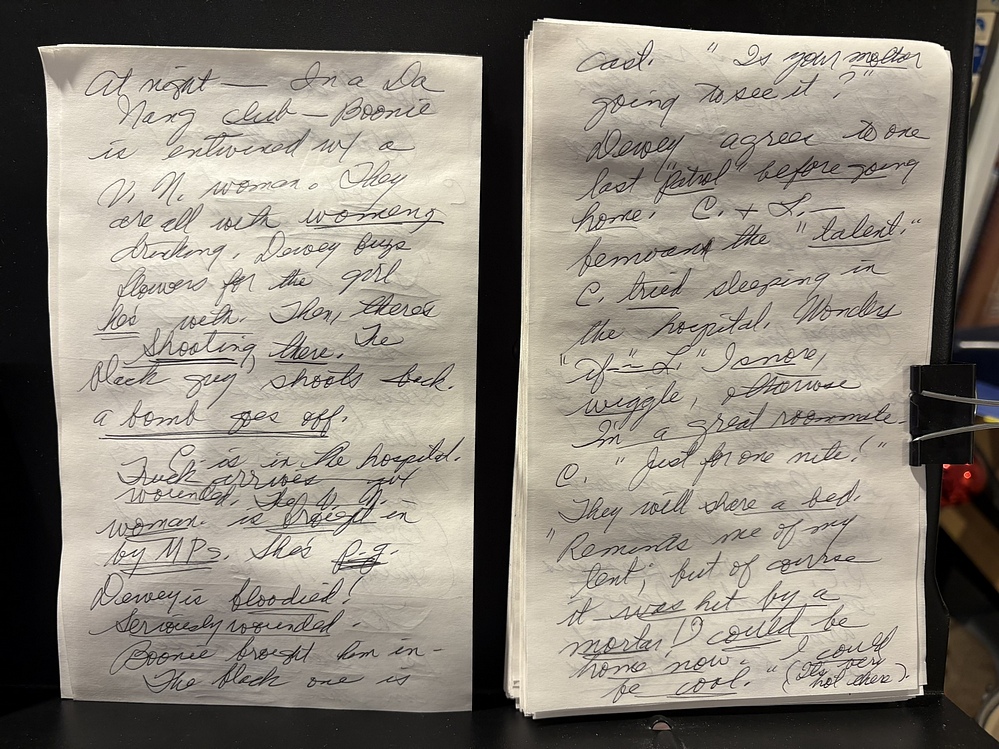 At night — In a Da
Nang club — Boonie
is entwined w/ a
V. N. woman. They
are all with womeng
drinking. Dewey buys
flowers for the girl
he's with. Then, there's
shooting there. The
black guy shoots back.
a bomb goes off.
C. is in the hospital.
Truck arrives w/
wounded. The V. N.
woman. is brought in
by MPs. She's p.g.
Dewey is bloodied!
Seriously wounded.
Boonie brought him in —
The black one is
cast. "Is your mother
going to see it?"
Dewey agrees to one
last "patrol" before going
home. C. + L. —
bemoans the "talent."
C. tried sleeping in
the hospital. Wonders
"if--" L. "I snore,
wiggle, otherwise
I'm a great roommate.
C. "Just for one nite!"
They will share a bed.
"Reminds me of my
tent; but of course
it was hit by a
mortar, I could be
home now. I could
be cool." (It's very
hot there).